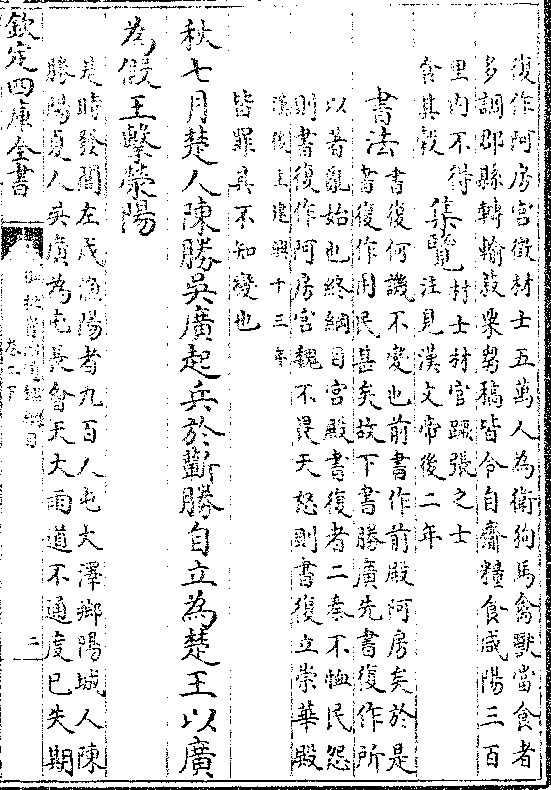 復作阿房宫徵材士五萬人為衛狗馬禽獸當食者
多調郡縣轉輸菽粟芻稿皆令自齎糧食咸陽三百
里内不得
食其榖
集覽
材士材官蹶張之士
注見漢文帝後二年
書法
書復何譏不變也前書作前殿阿房矣於是
書復作用民甚矣故下書勝廣先書復作所
以著亂始也終綱目宫殿書復者二秦不恤民怨
則書復作阿房宫魏不畏天怒則書復立崇華殿
漢後主建興十三年
皆罪其不知變也
秋七月楚人陳勝吳廣起兵於蘄勝自立為楚王以廣
為假王擊滎陽
是時發閭左戍漁陽者九百人屯大澤鄉陽城人陳
勝陽夏人吳廣為屯長會天大雨道不通度已失期
欽定四庫全書
卷二下
二